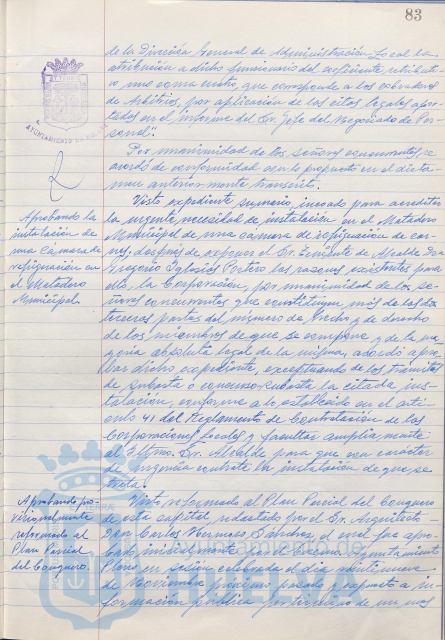 83
de la Dirección General de Administración Local la
atribución a dicho funcionario del coeficiente retributi-
vo uno coma cuatro, que corresponde a los cobradores
de Arbitrios, por aplicación de las citas legales apor-
tadas en el informe del Sr. Jefe del Negociado de Per-
sonal".
Por unanimidad de los señores concurrentes, se
acordó de conformidad con lo propuesto en el dicta-
men anteriormente transcrito.
Aprobando la
instalación de
una Cámara de
refrigeración en
el Matadero
Municipal.
Visto expediente sumario, incoado para acreditar
la urgente necesidad de instalación en el Matadero
Municipal de una cámara de refrigeración de car-
nes, después de exponer el Sr. Teniente de Alcalde Don
Gregorio Iglesias Portero las razones existentes para
ello, la Corporación, por unanimidad de los se-
ñores concurrentes, que constituyen más de las dos
terceras partes del número de hecho y de derecho
de los miembros de que se compone y de la ma-
yoría absoluta legal de la misma, acordó apro-
bar dicho expediente, exceptuando de los trámites
de subasta o concurso-subasta la citada ins-
talación, conforme a lo establecido en el artí-
culo 41 del Reglamento de Contratación de las
Corporaciones Locales y facultar ampliamente
al Iltmo. Sr. Alcalde para que con carácter
de urgencia contrate la instalación de que se
trata.
Aprobando pro-
visionalmente
reformado al
Plan Parcial
del Conquero.
Visto reformado al Plan Parcial del Conquero
de esta capital, redactado por el Sr. Arquitecto
Don Carlos Hermoso Sánchez, el cual fue apro-
bado inicialmente por el Excmo. Ayuntamiento
Pleno en sesión celebrada el día veintinueve
de noviembre próximo pasado y expuesto a in-
formación pública por término de un mes
AYUNTAMIENTO DE HUELVA
HUELVA